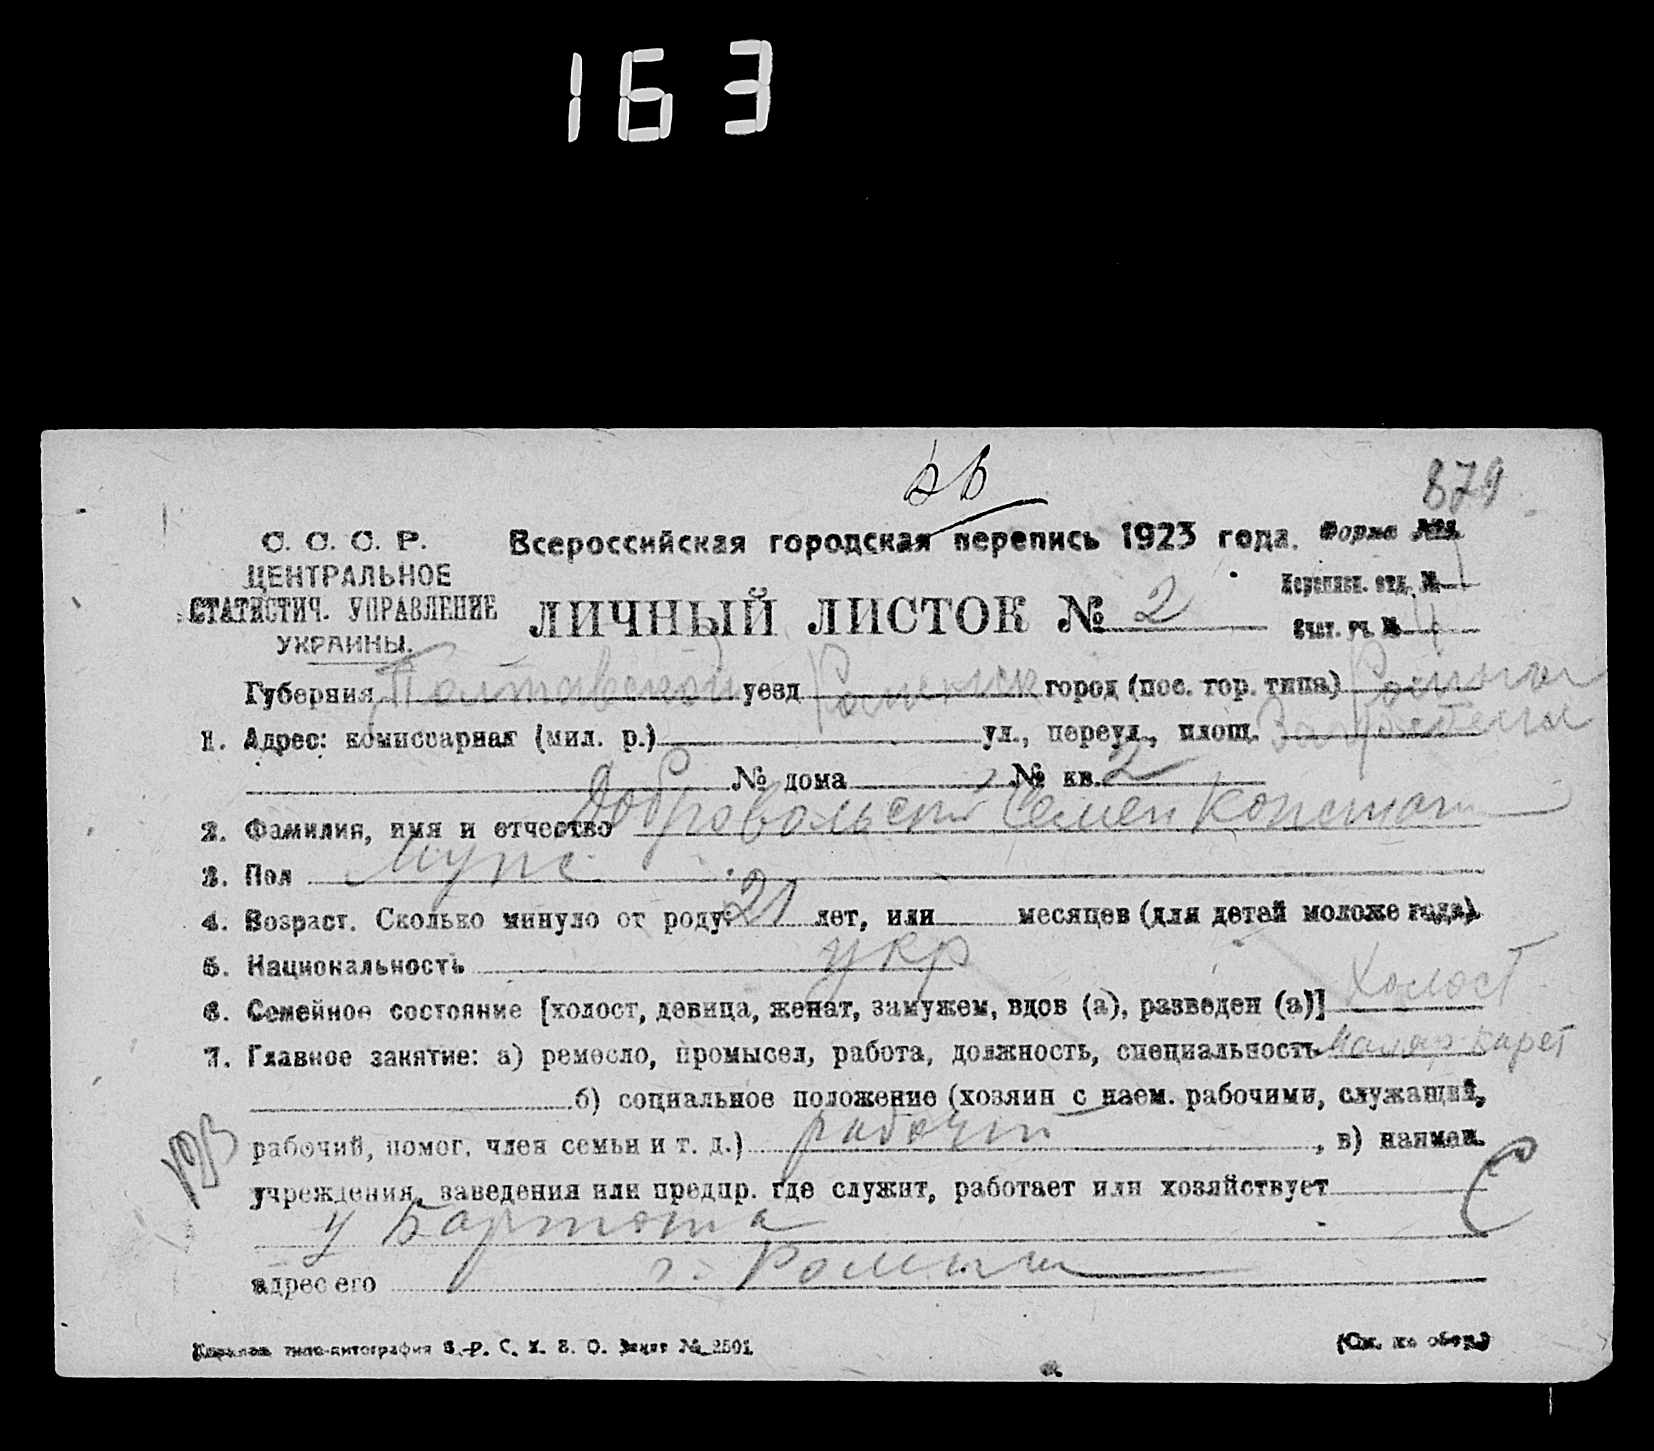 163
879
С. С. С. Р.
ЦЕНТРАЛЬНОЕ
СТАТИСТИЧ. УПРАВЛЕНИЕ
УКРАИНЫ.
Всероссийская городская перепись 1923 года.
Форма №
ЛИЧНЫЙ ЛИСТОК № 2
Переписн. отд. №
Счет. уч. №
Губерния Полтавской уезд Роменск город (пос. гор. типа)
1. Адрес: комиссарная (мил. р.) ул., переул., площ.
№ дома № кв. 2
2. Фамилия, имя и отчество Добровольский Семен Констант
3. Пол Муж.
4. Возраст. Сколько минуло от роду: 21 лет, или месяцев (для детей моложе года).
5. Национальность укр
6. Семейное состояние [холост, девица, женат, замужем, вдов (а), разведен (а)] Холост
7. Главное занятие: а) ремесло, промысел, работа, должность, специальность Маляр карет
б) социальное положение (хозяин с наем. рабочими, служащий,
рабочий, помог. член семьи и т. д.) рабочий, в) наимен.
учреждения, заведения или предпр. где служит, работает или хозяйствует
у
адрес его г. Ромны
типо-литография Заказ № 2501
(См. на обор.)